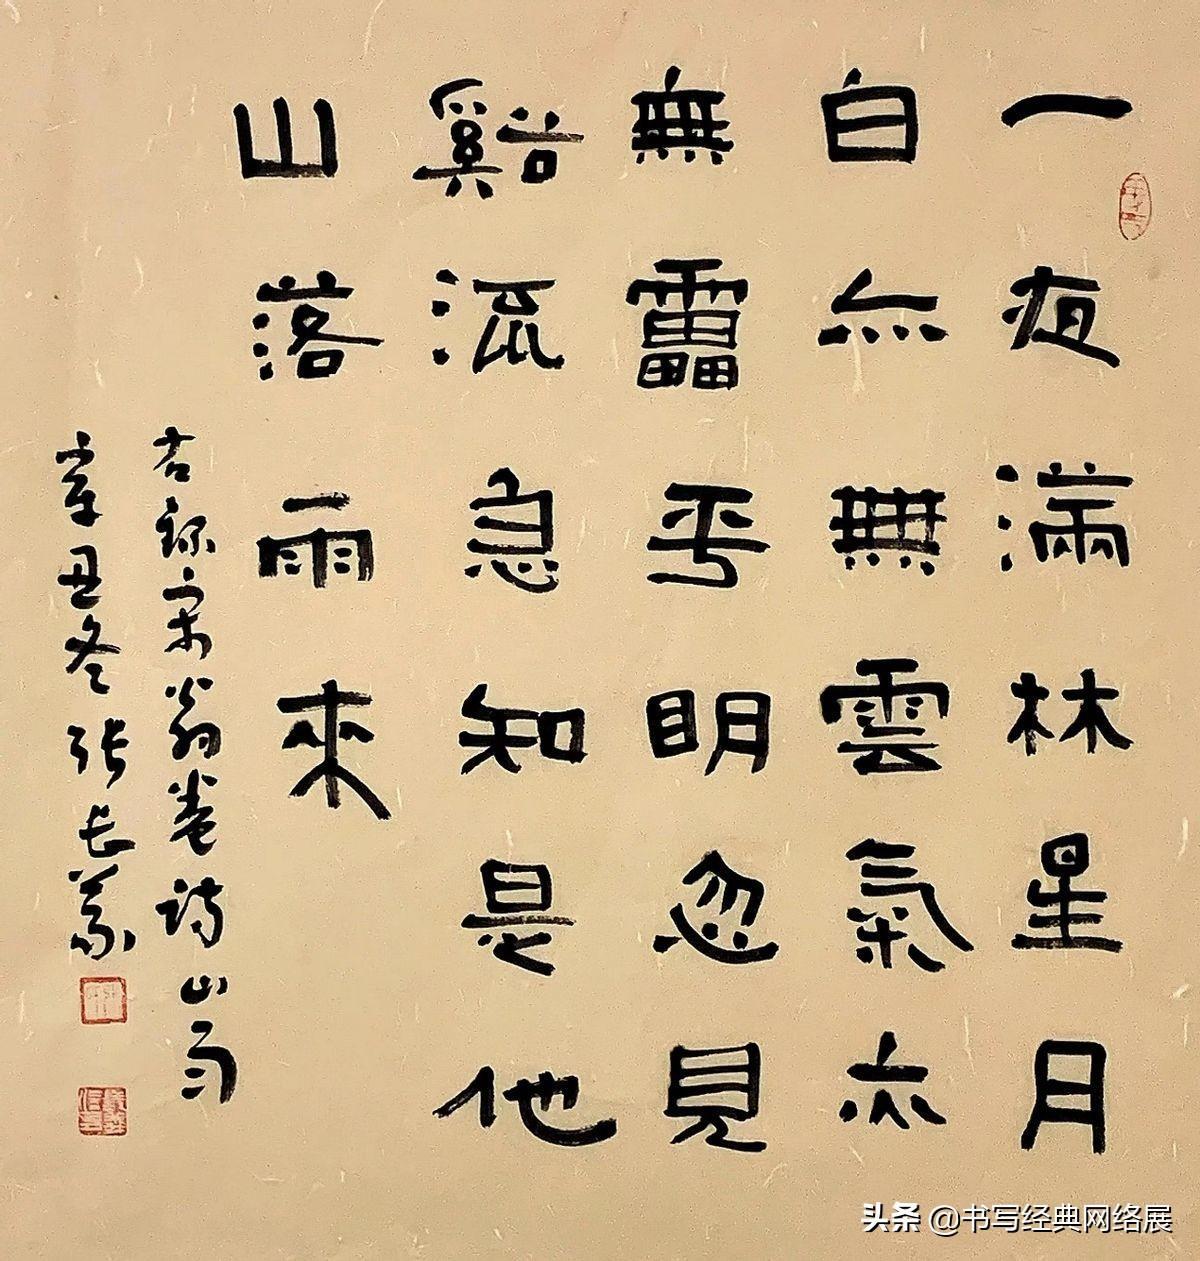 一夜滿林星月
白亦無雲氣亦
無靁平明忽見
谿流急知是他
山落雨來
右錄宋翁卷詩山雨
辛丑冬張長義
头条 @书写经典网络展